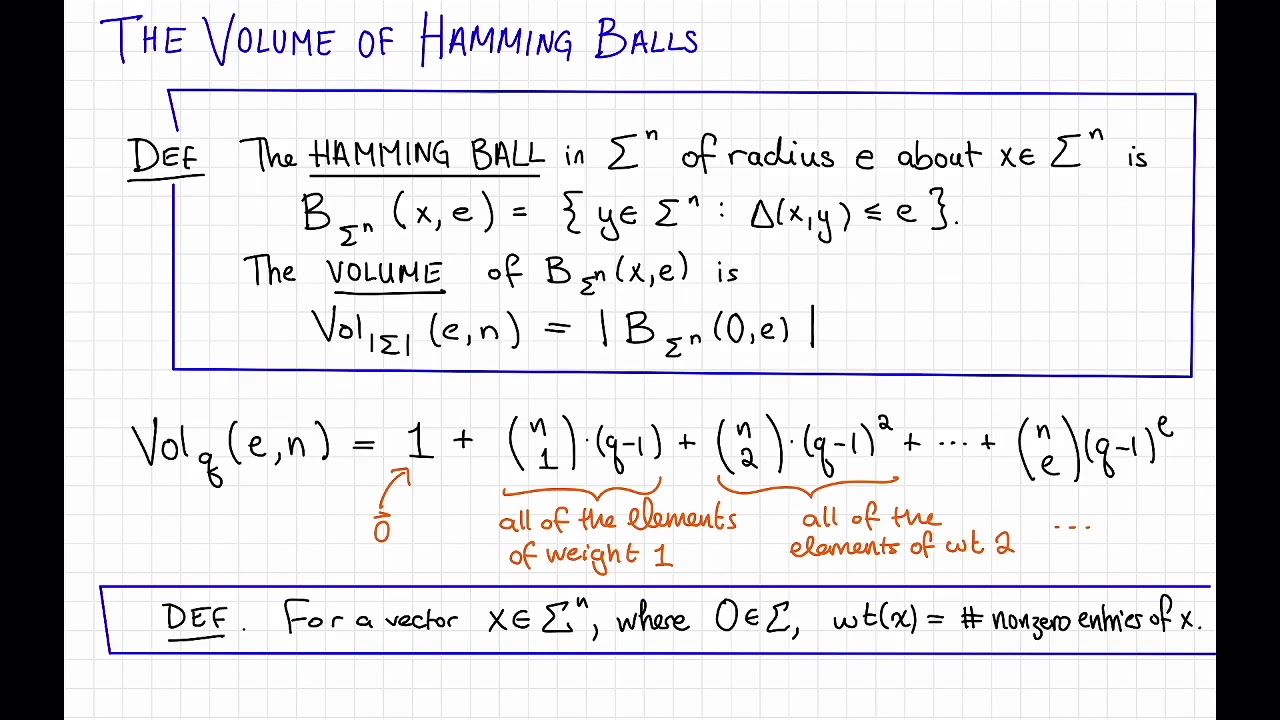 THE VOLUME OF HAMMING BALLS
DEF The HAMMING BALL in Σⁿ of radius e about x∈ Σⁿ is
B_Σⁿ (x,e) = { y∈ Σⁿ : Δ(x,y) ≤ e }.
The VOLUME of B_Σⁿ(x,e) is
Vol_|Σ| (e,n) = | B_Σⁿ (0,e) |
Vol_q (e,n) = 1 + (n 1)·(q-1) + (n 2)·(q-1)² + ··· + (n e)(q-1)^e
0⃗ all of the elements of weight 1 all of the elements of wt 2 ···
DEF. For a vector x∈Σⁿ, where 0∈Σ, wt(x) = # nonzero entries of x.